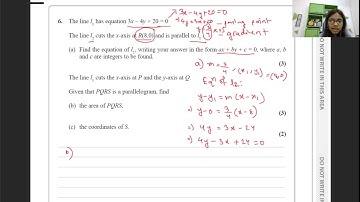 6. The line l₁ has equation 3x – 4y + 20 = 0
→ 3x - 4y + 20 = 0
The line l₂ cuts the x-axis at R(8,0) and is parallel to l₁
gradient
(a) Find the equation of l₂, writing your answer in the form ax + by + c = 0, where a, b
and c are integers to be found.
(3)
a) m = 3/4 (x₁, y₁) = (8, 0)
Eqⁿ of l₂:
y - y₁ = m(x - x₁)
y - 0 = 3/4 (x - 8)
4y = 3x - 24
4y - 3x + 24 = 0
The line l₁ cuts the x-axis at P and the y-axis at Q.
Given that PQRS is a parallelogram, find
(b) the area of PQRS,
(3)
(c) the coordinates of S.
(2)
b)
DO NOT WRITE IN THIS AREA
DO NOT